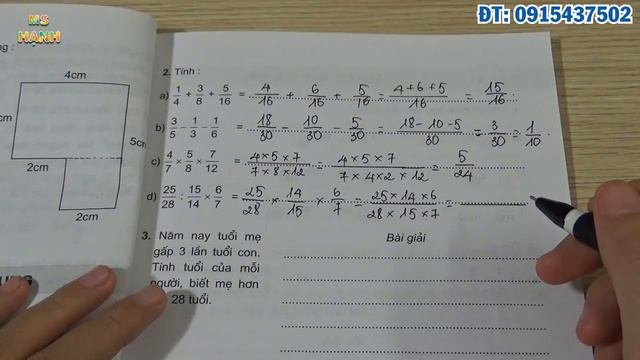 MS
HẠNH
ĐT: 0915437502
4cm
5c
2cm
2cm
2. Tính :
a) 1/4 + 3/8 + 5/16 = 4/16 + 6/16 + 5/16 = (4+6+5)/16 = 15/16
b) 3/5 - 1/3 - 1/6 = 18/30 - 10/30 - 5/30 = (18-10-5)/30 = 3/30 = 1/10
c) 4/7 × 5/8 × 7/12 = (4×5×7)/(7×8×12) = (4×5×7)/(7×4×2×12) = 5/24
d) 25/28 : 15/14 × 6/7 = 25/28 × 14/15 × 6/7 = (25×14×6)/(28×15×7) =
3. Năm nay tuổi mẹ
gấp 3 lần tuổi con.
Tính tuổi của mỗi
người, biết mẹ hơn
28 tuổi.
Bài giải